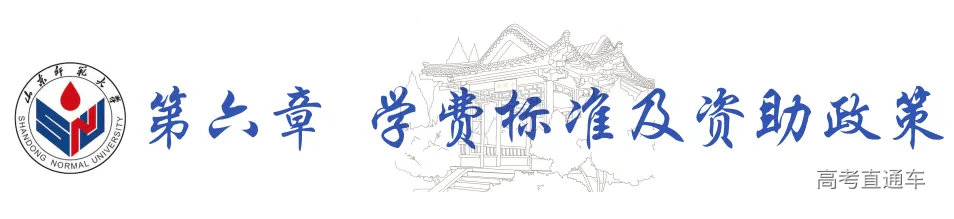 山东师范大学
SHANDONG NORMAL UNIVERSITY
第六章 学费标准及资助政策
高考直通车